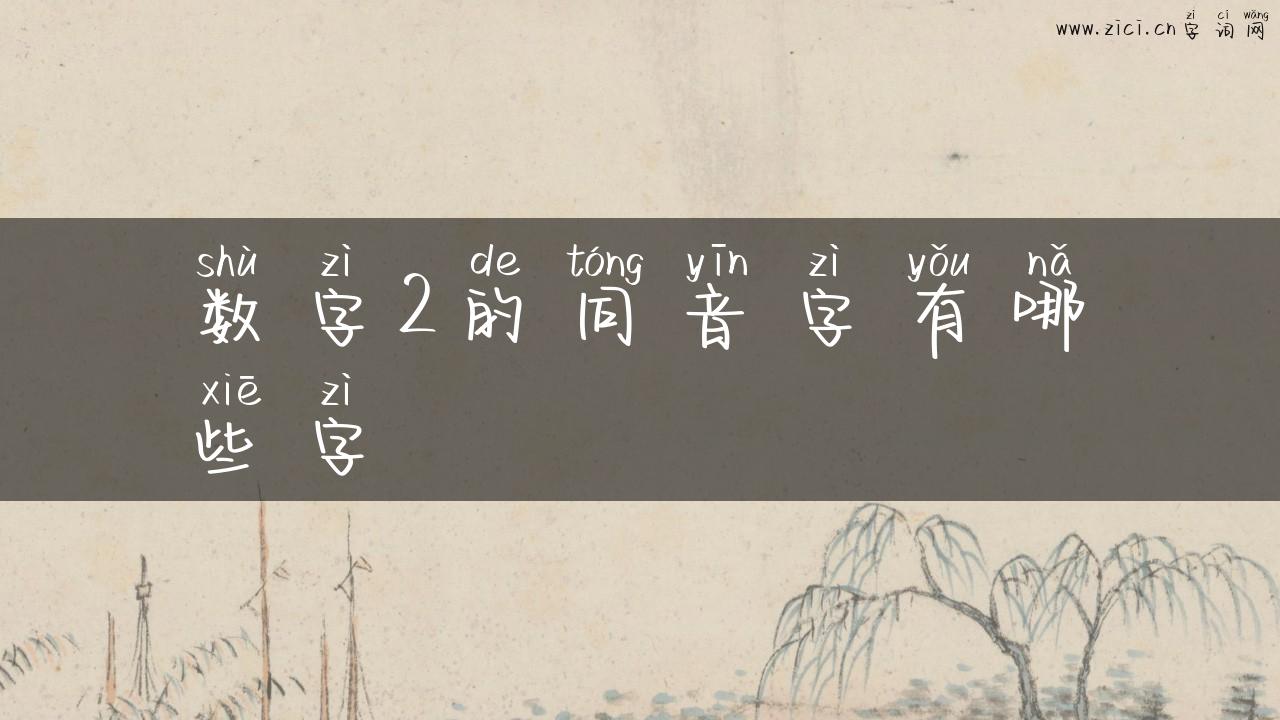 zì cí wǎng
www.zici.cn字词网
shù zì de tóng yīn zì yǒu nǎ
数字2的同音字有哪
xiē zì
些字